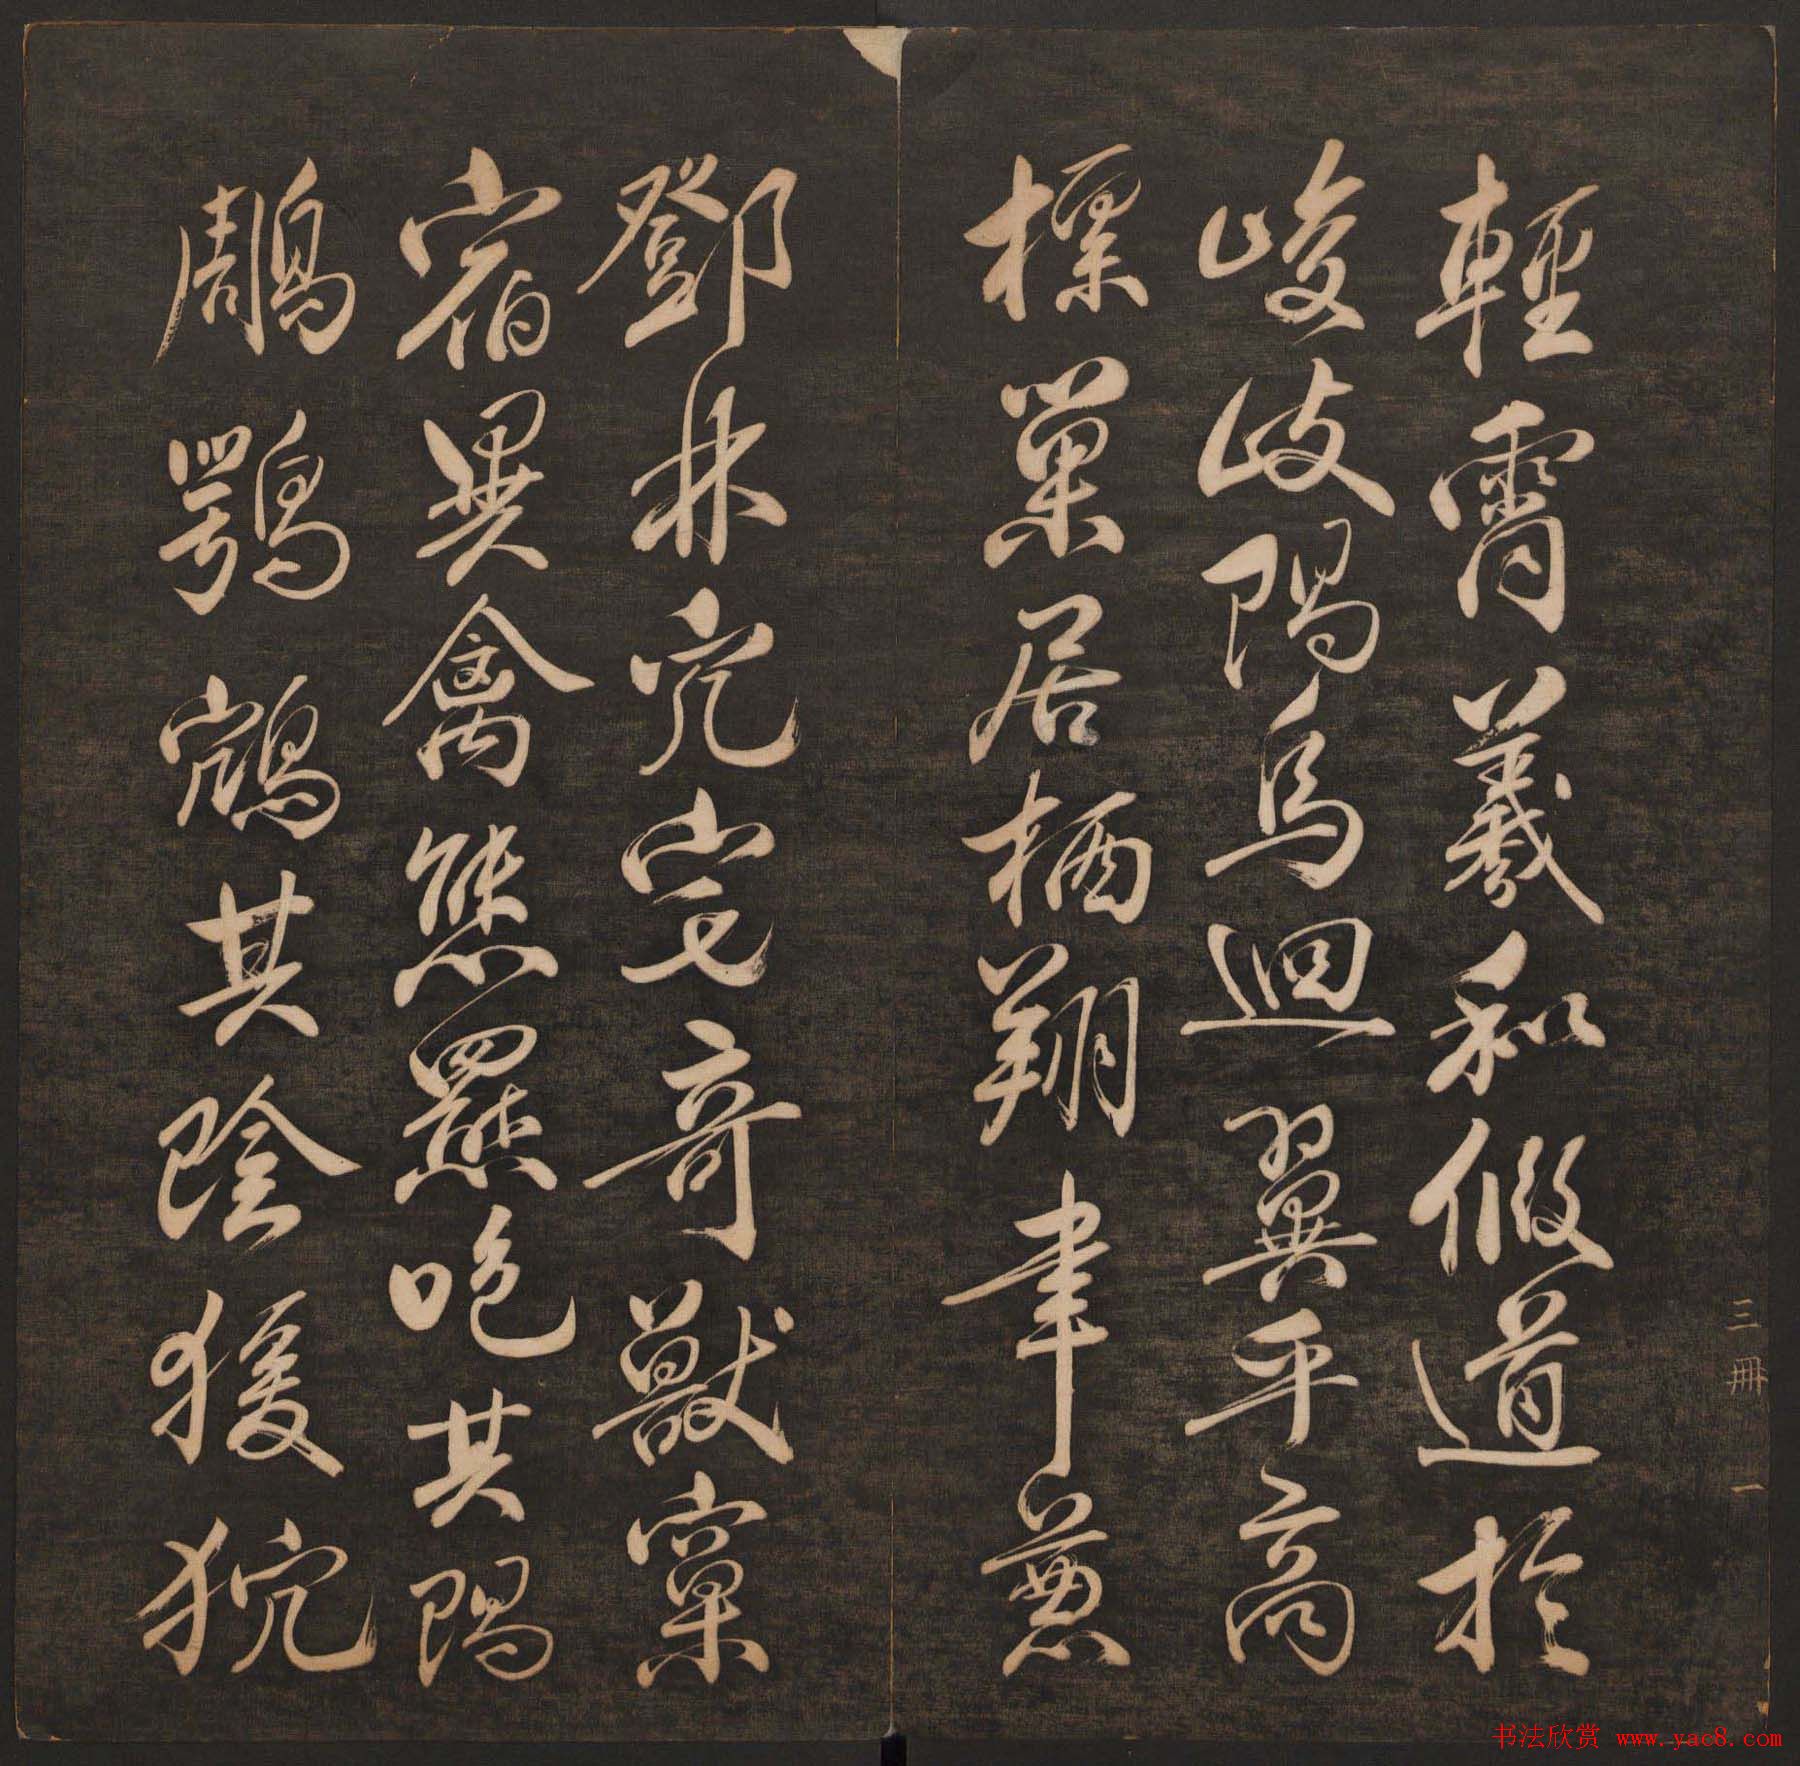 輕霄羲和假道於
峻岐陽烏迴翼乎高
標巢居栖翔聿兼
鄧林穴宅奇獸窠
宿異禽熊羆咆其陽
鵰鶚鴥其陰猨狖
三冊 一
书法欣赏 www.yac8.com